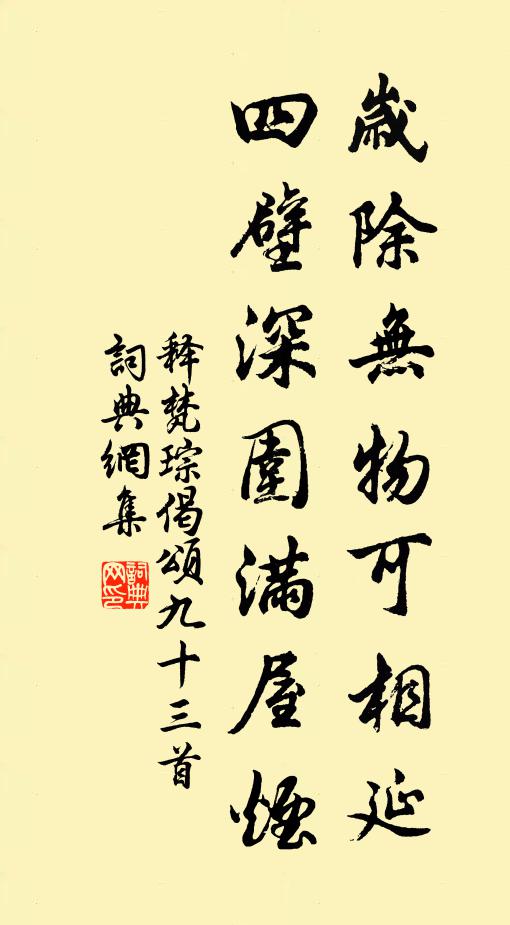 歲除無物可相延
四壁深圍滿屋煙
释梵琮偈頌九十三首
詞典網集
詞典网印